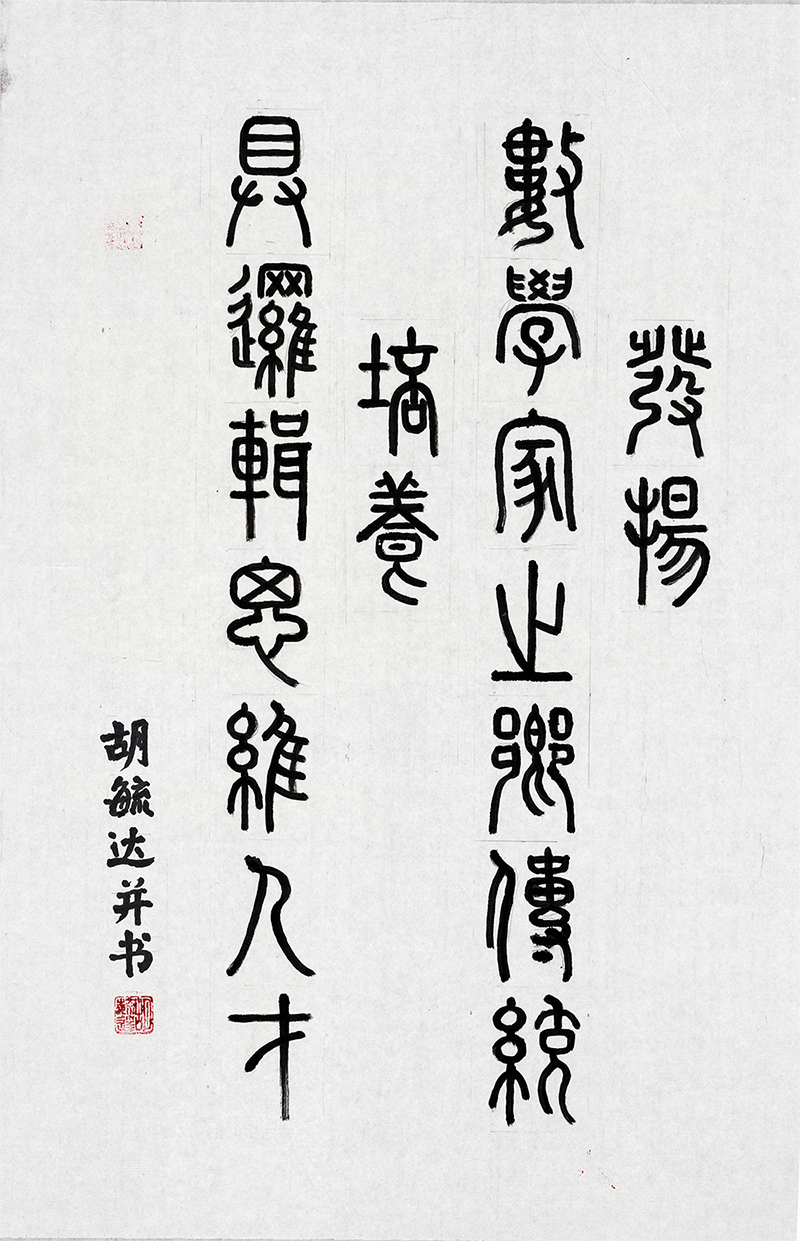 發揚
數學家之鄉傳統
培養
具邏輯思維人才
胡毓达并书